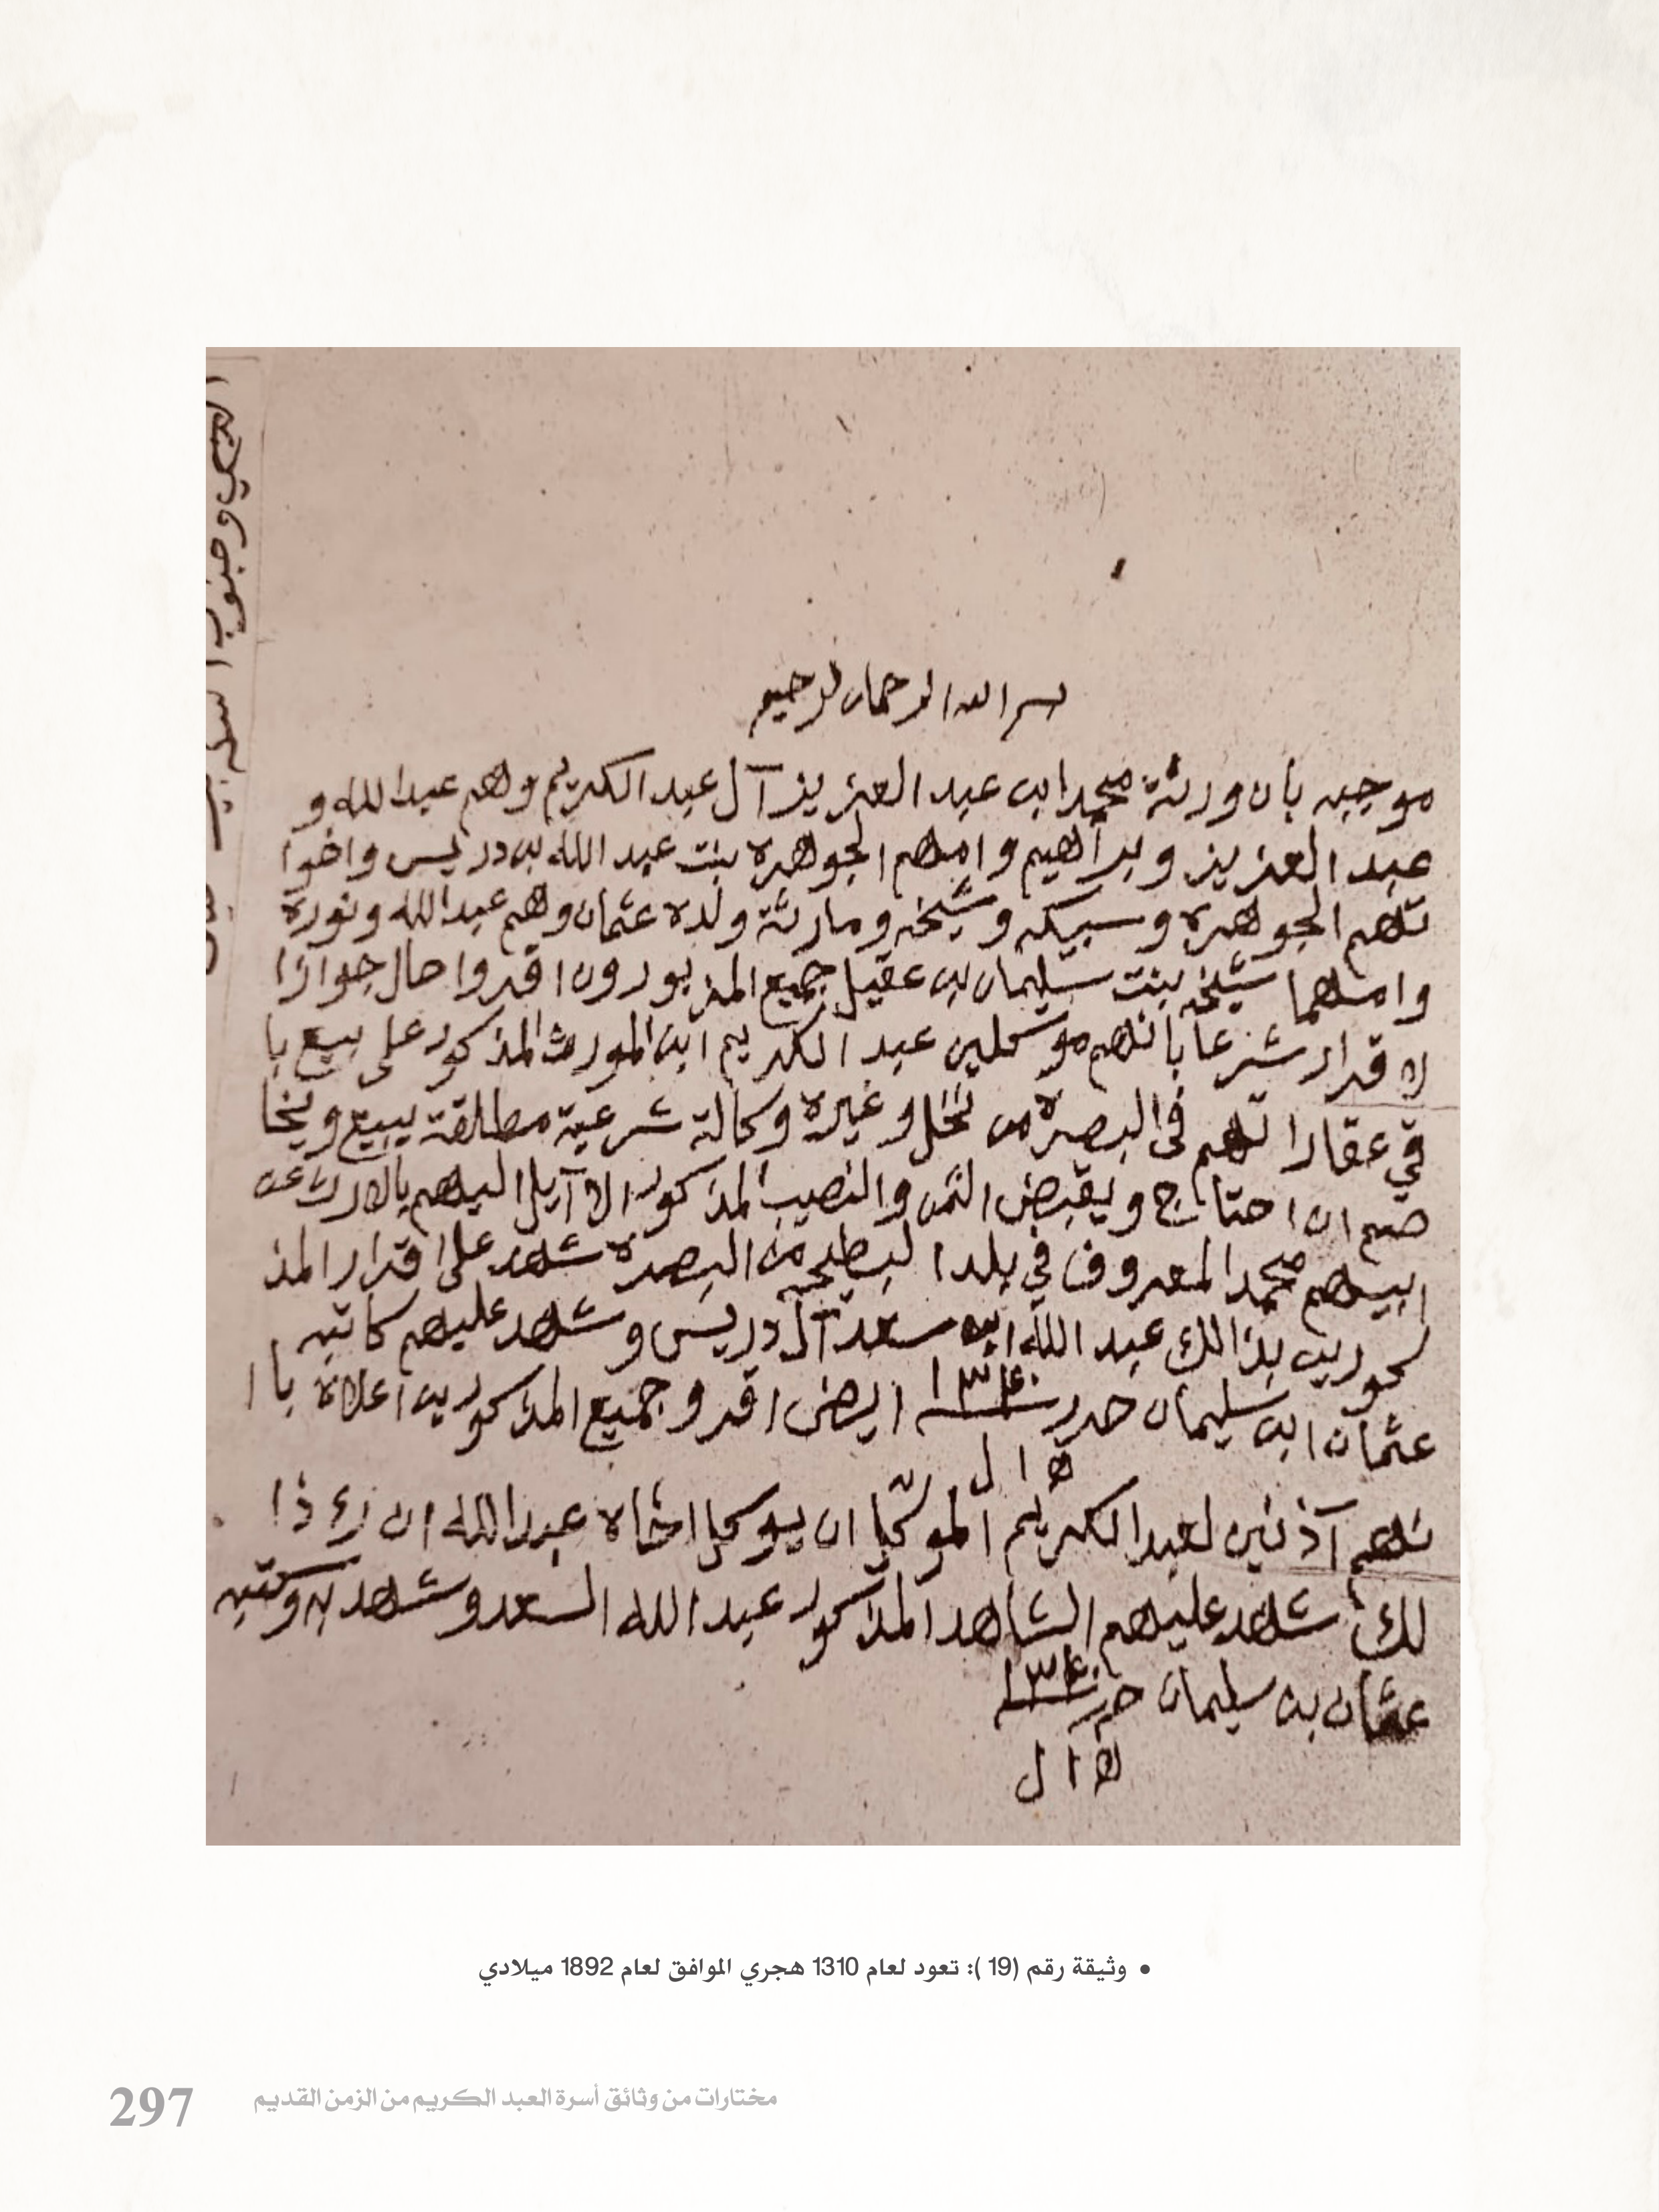 بسم الله الرحمان لرحيم
موجبه بان ورثة محمد ابن عبد العزيز آل عبد الكريم وهم عبد الله و
عبد العزيز وبراهيم وامهم الجوهره بنت عبد الله بن دريس واخوا
تهم الجوهره وسبيكه وشيخه ومارثة ولده عثمان وهم عبد الله ونورة
وامهما شيخه بنت سليمان بن عقيل جميع المزبورون اقروا حال جوازا
لاقرار شرعا بانهم موكلين عبد الكريم ابن المورث المذكور على بيع با
قي عقارا تهم في البصره من نخل وغيره وكالة شرعية مطلقة يبيع ويخا
صم ان احتاج ويقبض الثمن والنصيب المذكور الا آيل اليهم بالارث عن
ابيهم محمد المعروف في بلد البطيحه من البصره شهد على اقرار المذ
كورين بذالك عبد الله ابن سعد آل دريس وشهد عليهم كاتبه
عثمان ابن سليمان حرر سنة ١٣١٠ ايض اقر و جميع المذكورين اعلاه با ا
ه ا ل
نهم آذنين لعبد الكريم الموكل ان يوكل اخاه عبد الله ان
لك شهد عليهم الشاهد المذكور عبد الله السعد وشهد به وكتبه
عثمان بن سليمان حرر
ه ا ل
وجنوب
• وثيقة رقم (19 ): تعود لعام 1310 هجري الموافق لعام 1892 ميلادي
مختارات من وثائق أسرة العبد الكريم من الزمن القديم
297